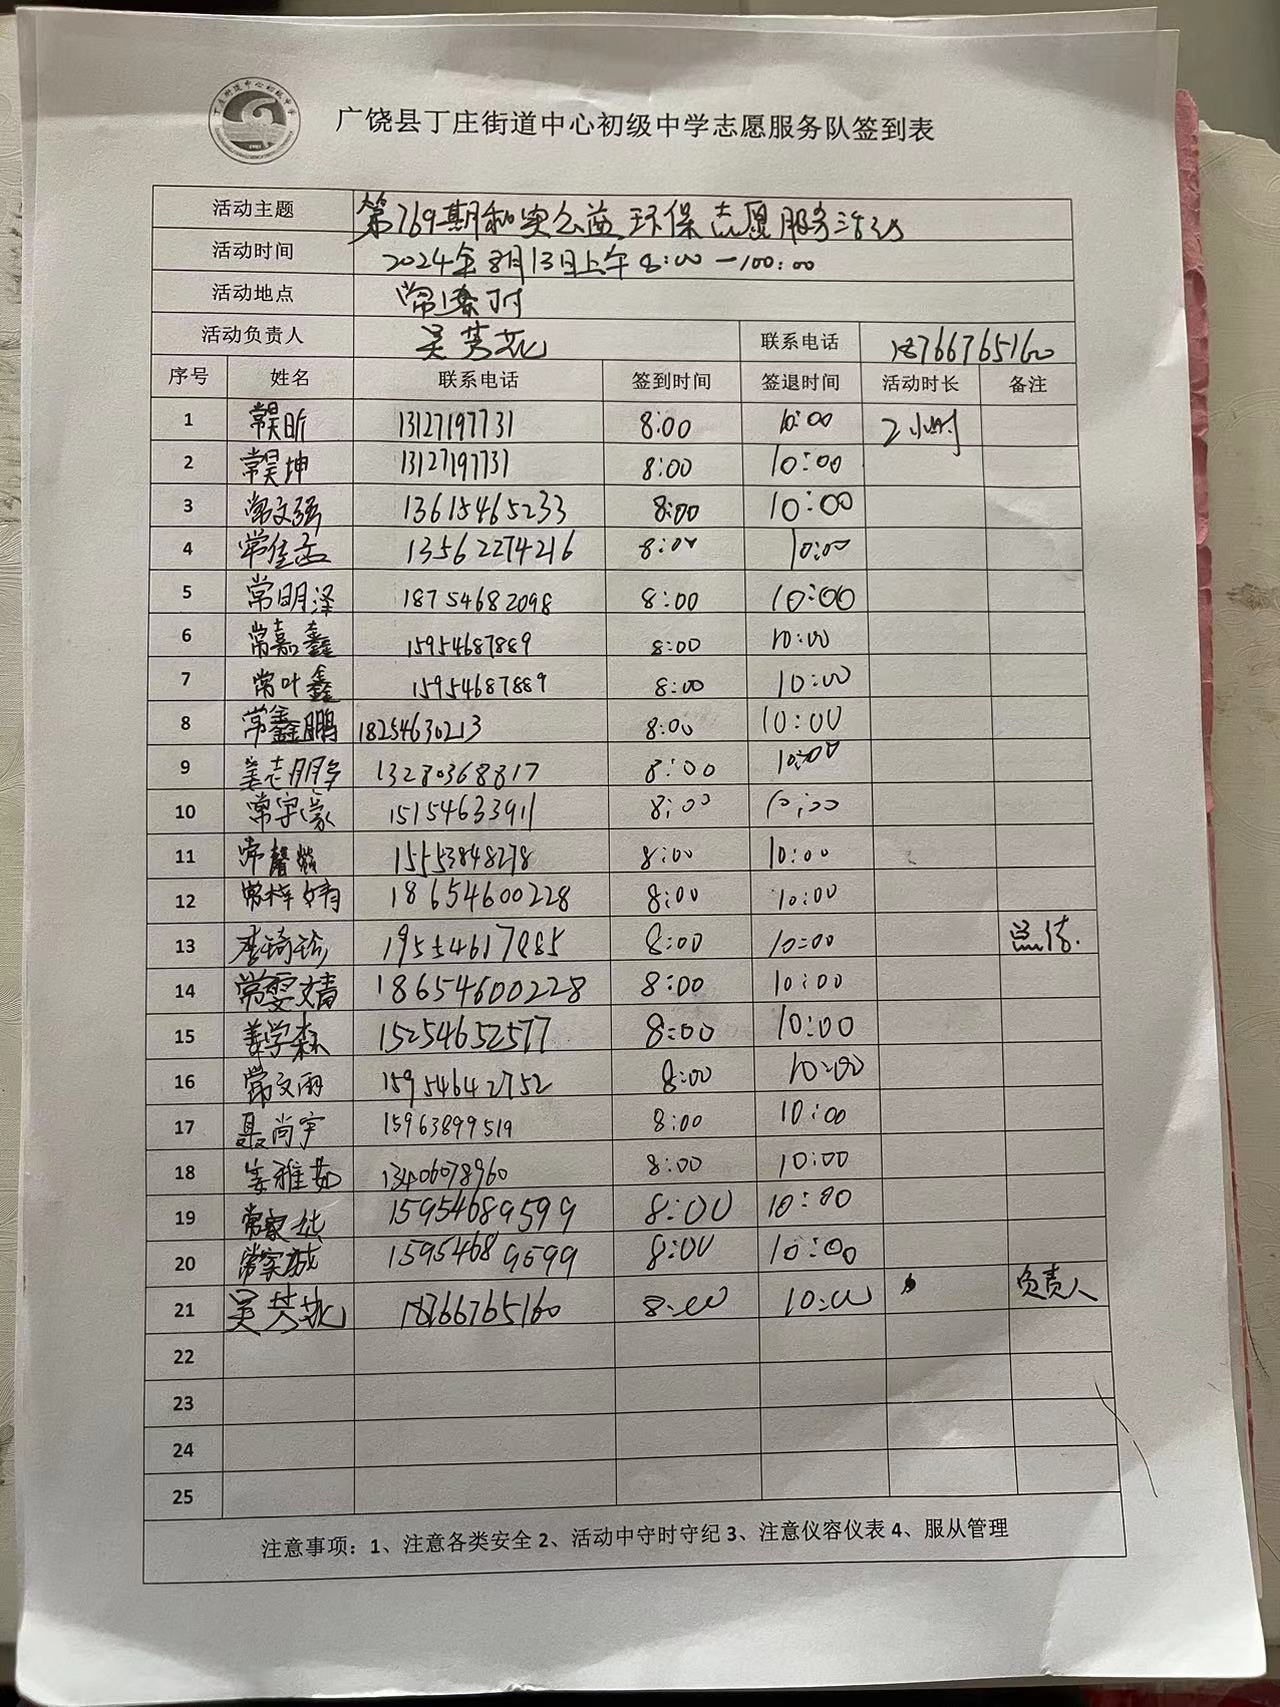 广饶县丁庄街道中心初级中学志愿服务队签到表
活动主题 第769期和实公益环保志愿服务活动
活动时间 2024年8月13日上午8:00—100:00
活动地点 常
活动负责人 吴芳花 联系电话 18766765160
序号 姓名 联系电话 签到时间 签退时间 活动时长 备注
1 常昊昕 13127197731 8:00 10:00 2小时
2 常昊坤 13127197731 8:00 10:00
3 常文强 13615465233 8:00 10:00
4 常佳 13562274216 8:00 10:00
5 常明泽 18754682098 8:00 10:00
6 常嘉鑫 15954687889 8:00 10:00
7 常叶鑫 15954687889 8:00 10:00
8 常鑫鹏 18254630213 8:00 10:00
9 姜志朋 13280368817 8:00 10:00
10 常宇豪 15154633911 8:00 10:00
11 常馨 15553848278 8:00 10:00
12 常梓婧 18654600228 8:00 10:00
13 李琦珍 19554617885 8:00 10:00 总结.
14 常雯婧 18654600228 8:00 10:00
15 姜学森 15254652577 8:00 10:00
16 常文雨 15954642752 8:00 10:00
17 聂尚宇 15963899519 8:00 10:00
18 姜雅茹 13406078960 8:00 10:00
19 常家 15954689599 8:00 10:00
20 常家诚 15954689599 8:00 10:00
21 吴芳花 18766765160 8:00 10:00 负责人
22
23
24
25
注意事项：1、注意各类安全 2、活动中守时守纪 3、注意仪容仪表 4、服从管理